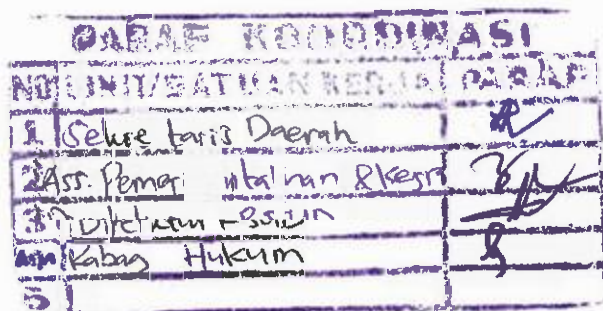 PARAF KOORDINASI
NO UNIT/SATUAN KERJA PARAF
1 Sekretaris Daerah
2 Ass. Pemerintahan & Kesra
3
4 Kabag Hukum
5